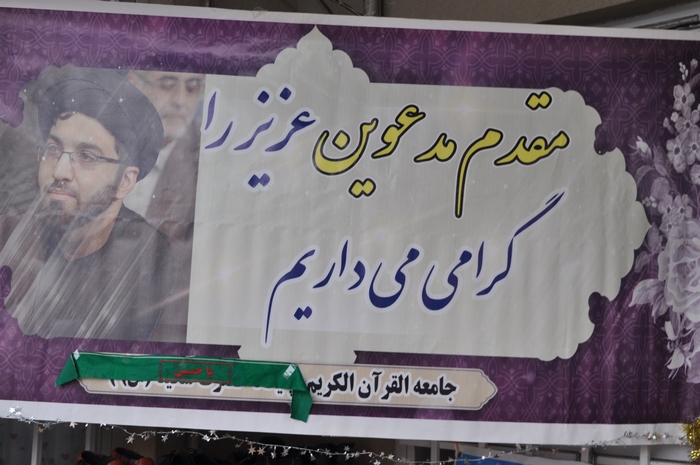 مقدم مدعوین عزیز را
گرامی می داریم
جامعه القرآن الکریم
یا حسین